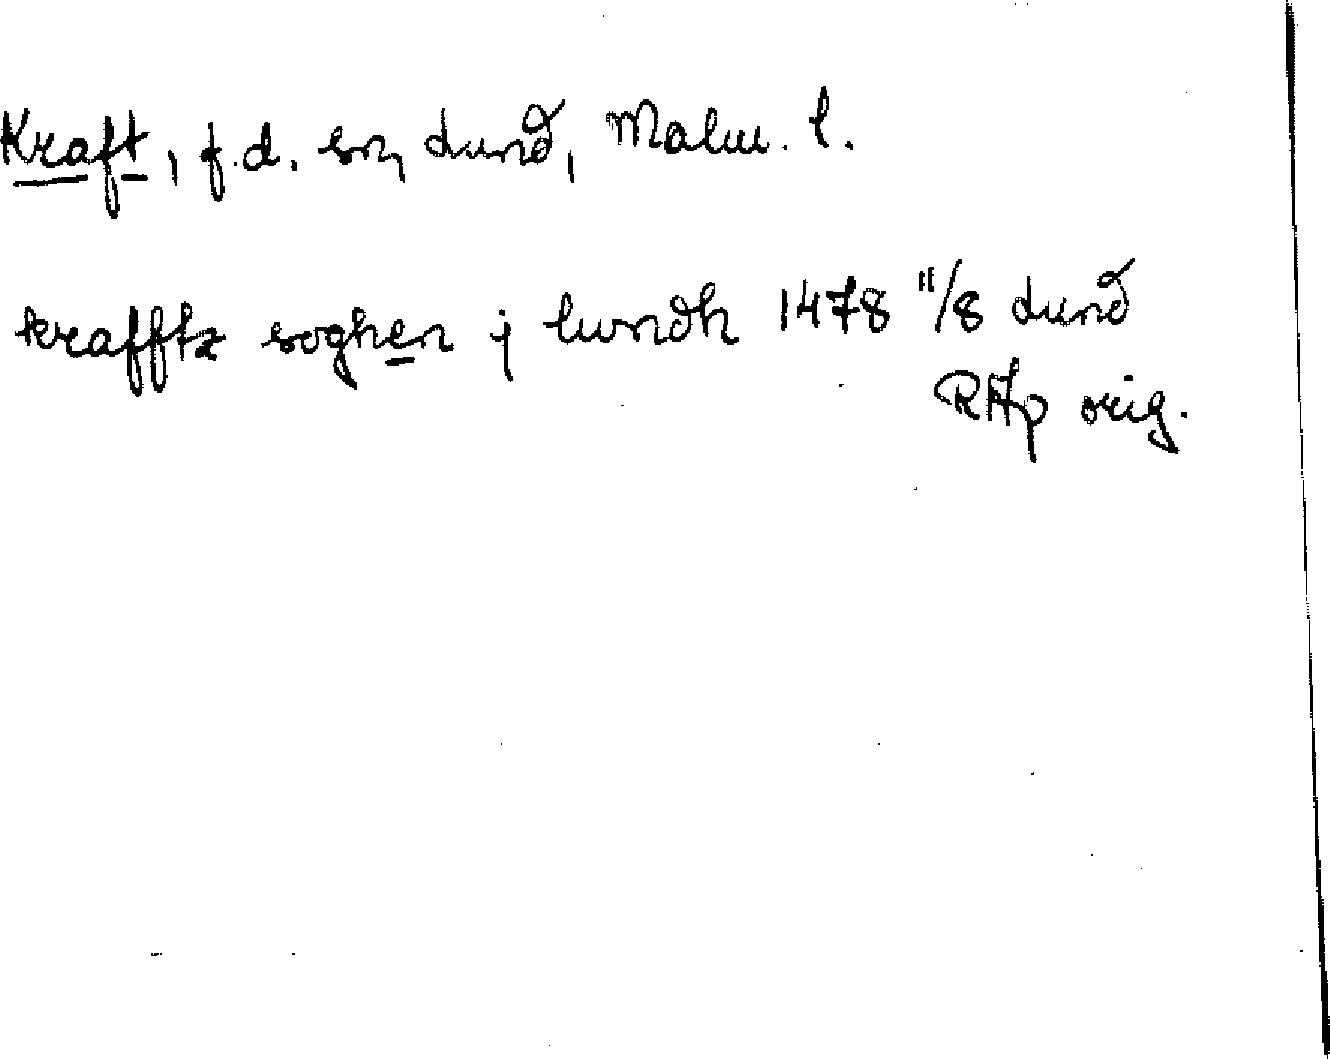 Kraft, f.d. sn, Lund, Malm. l.
krafftz soghen j lundh 1478 11/8 Lund
RAp orig.